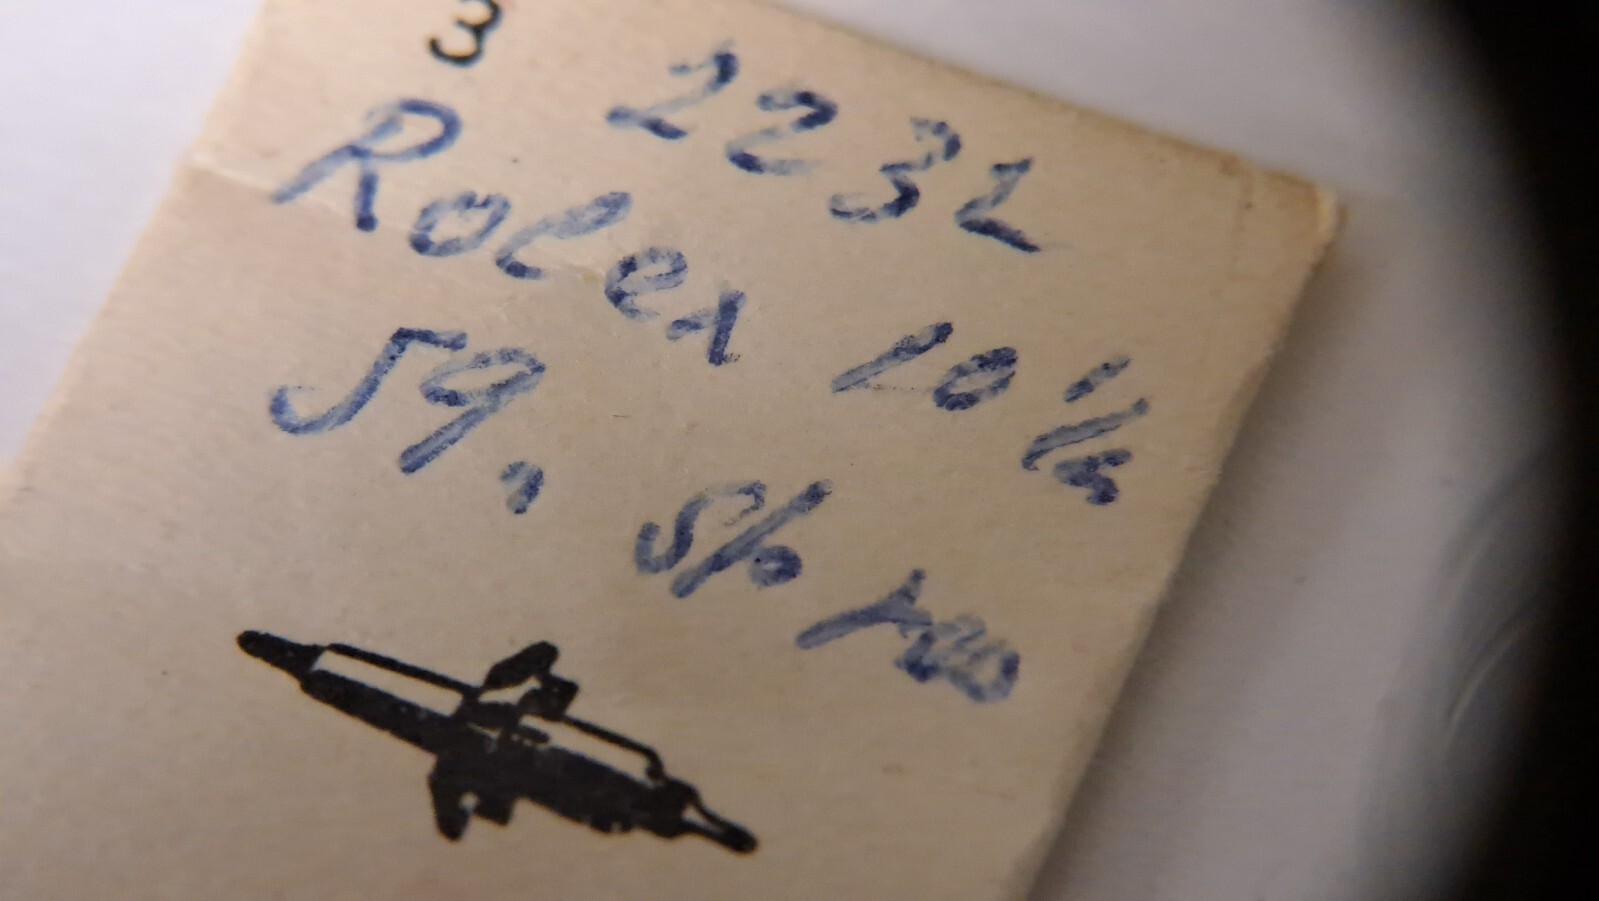 3
2232
Rolex 10½
59, S/o